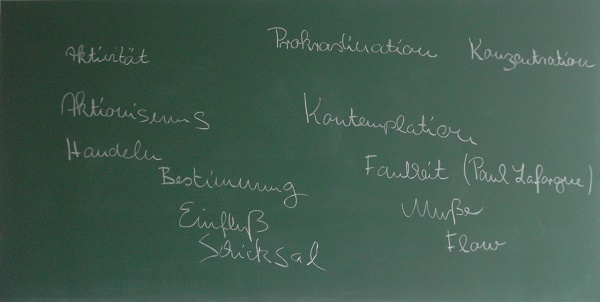 Aktivität Prokrastination Konzentration
Aktionismus Kontemplation
Handeln Faulheit (Paul Lafargue)
Bestimmung
Einfluß Muße
Schicksal Flow